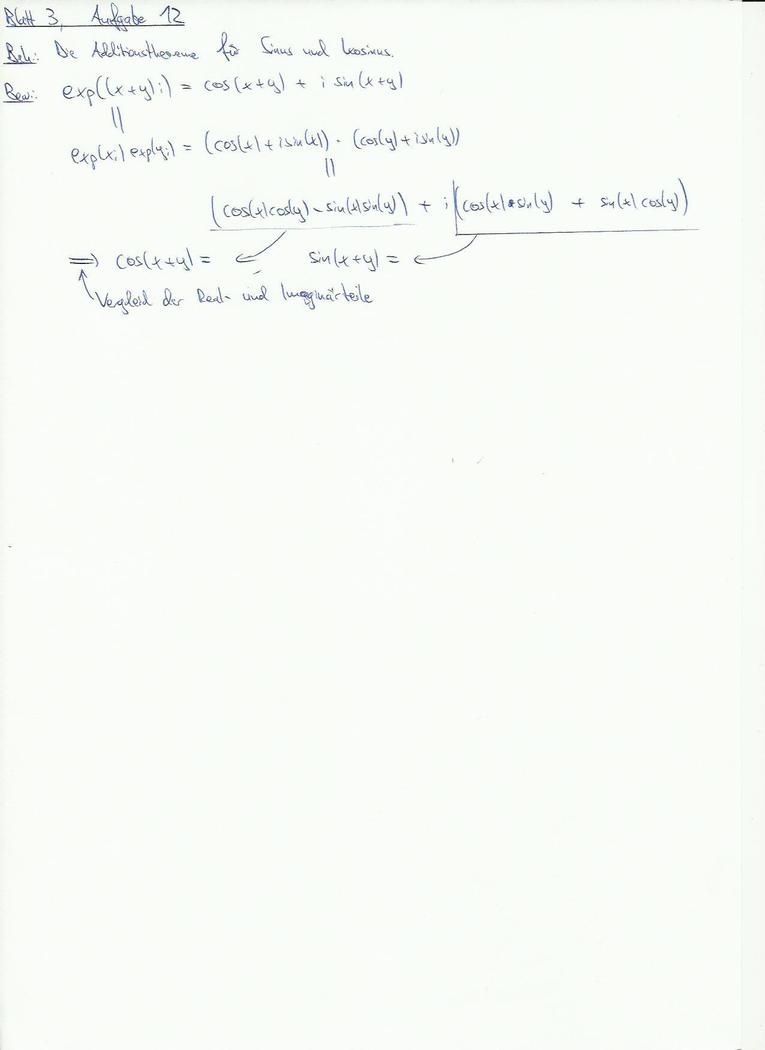 Blatt 3, Aufgabe 12
Beh.: Die Additionstheoreme für Sinus und Kosinus.
Bew.: exp((x+y)i) = cos(x+y) + i sin(x+y)
||
exp(xi) exp(yi) = (cos(x) + i sin(x)) · (cos(y) + i sin(y))
||
(cos(x) cos(y) - sin(x) sin(y)) + i (cos(x) sin(y) + sin(x) cos(y))
⇒ cos(x+y) = ← sin(x+y) = ←
↑ Vergleich der Real- und Imaginärteile